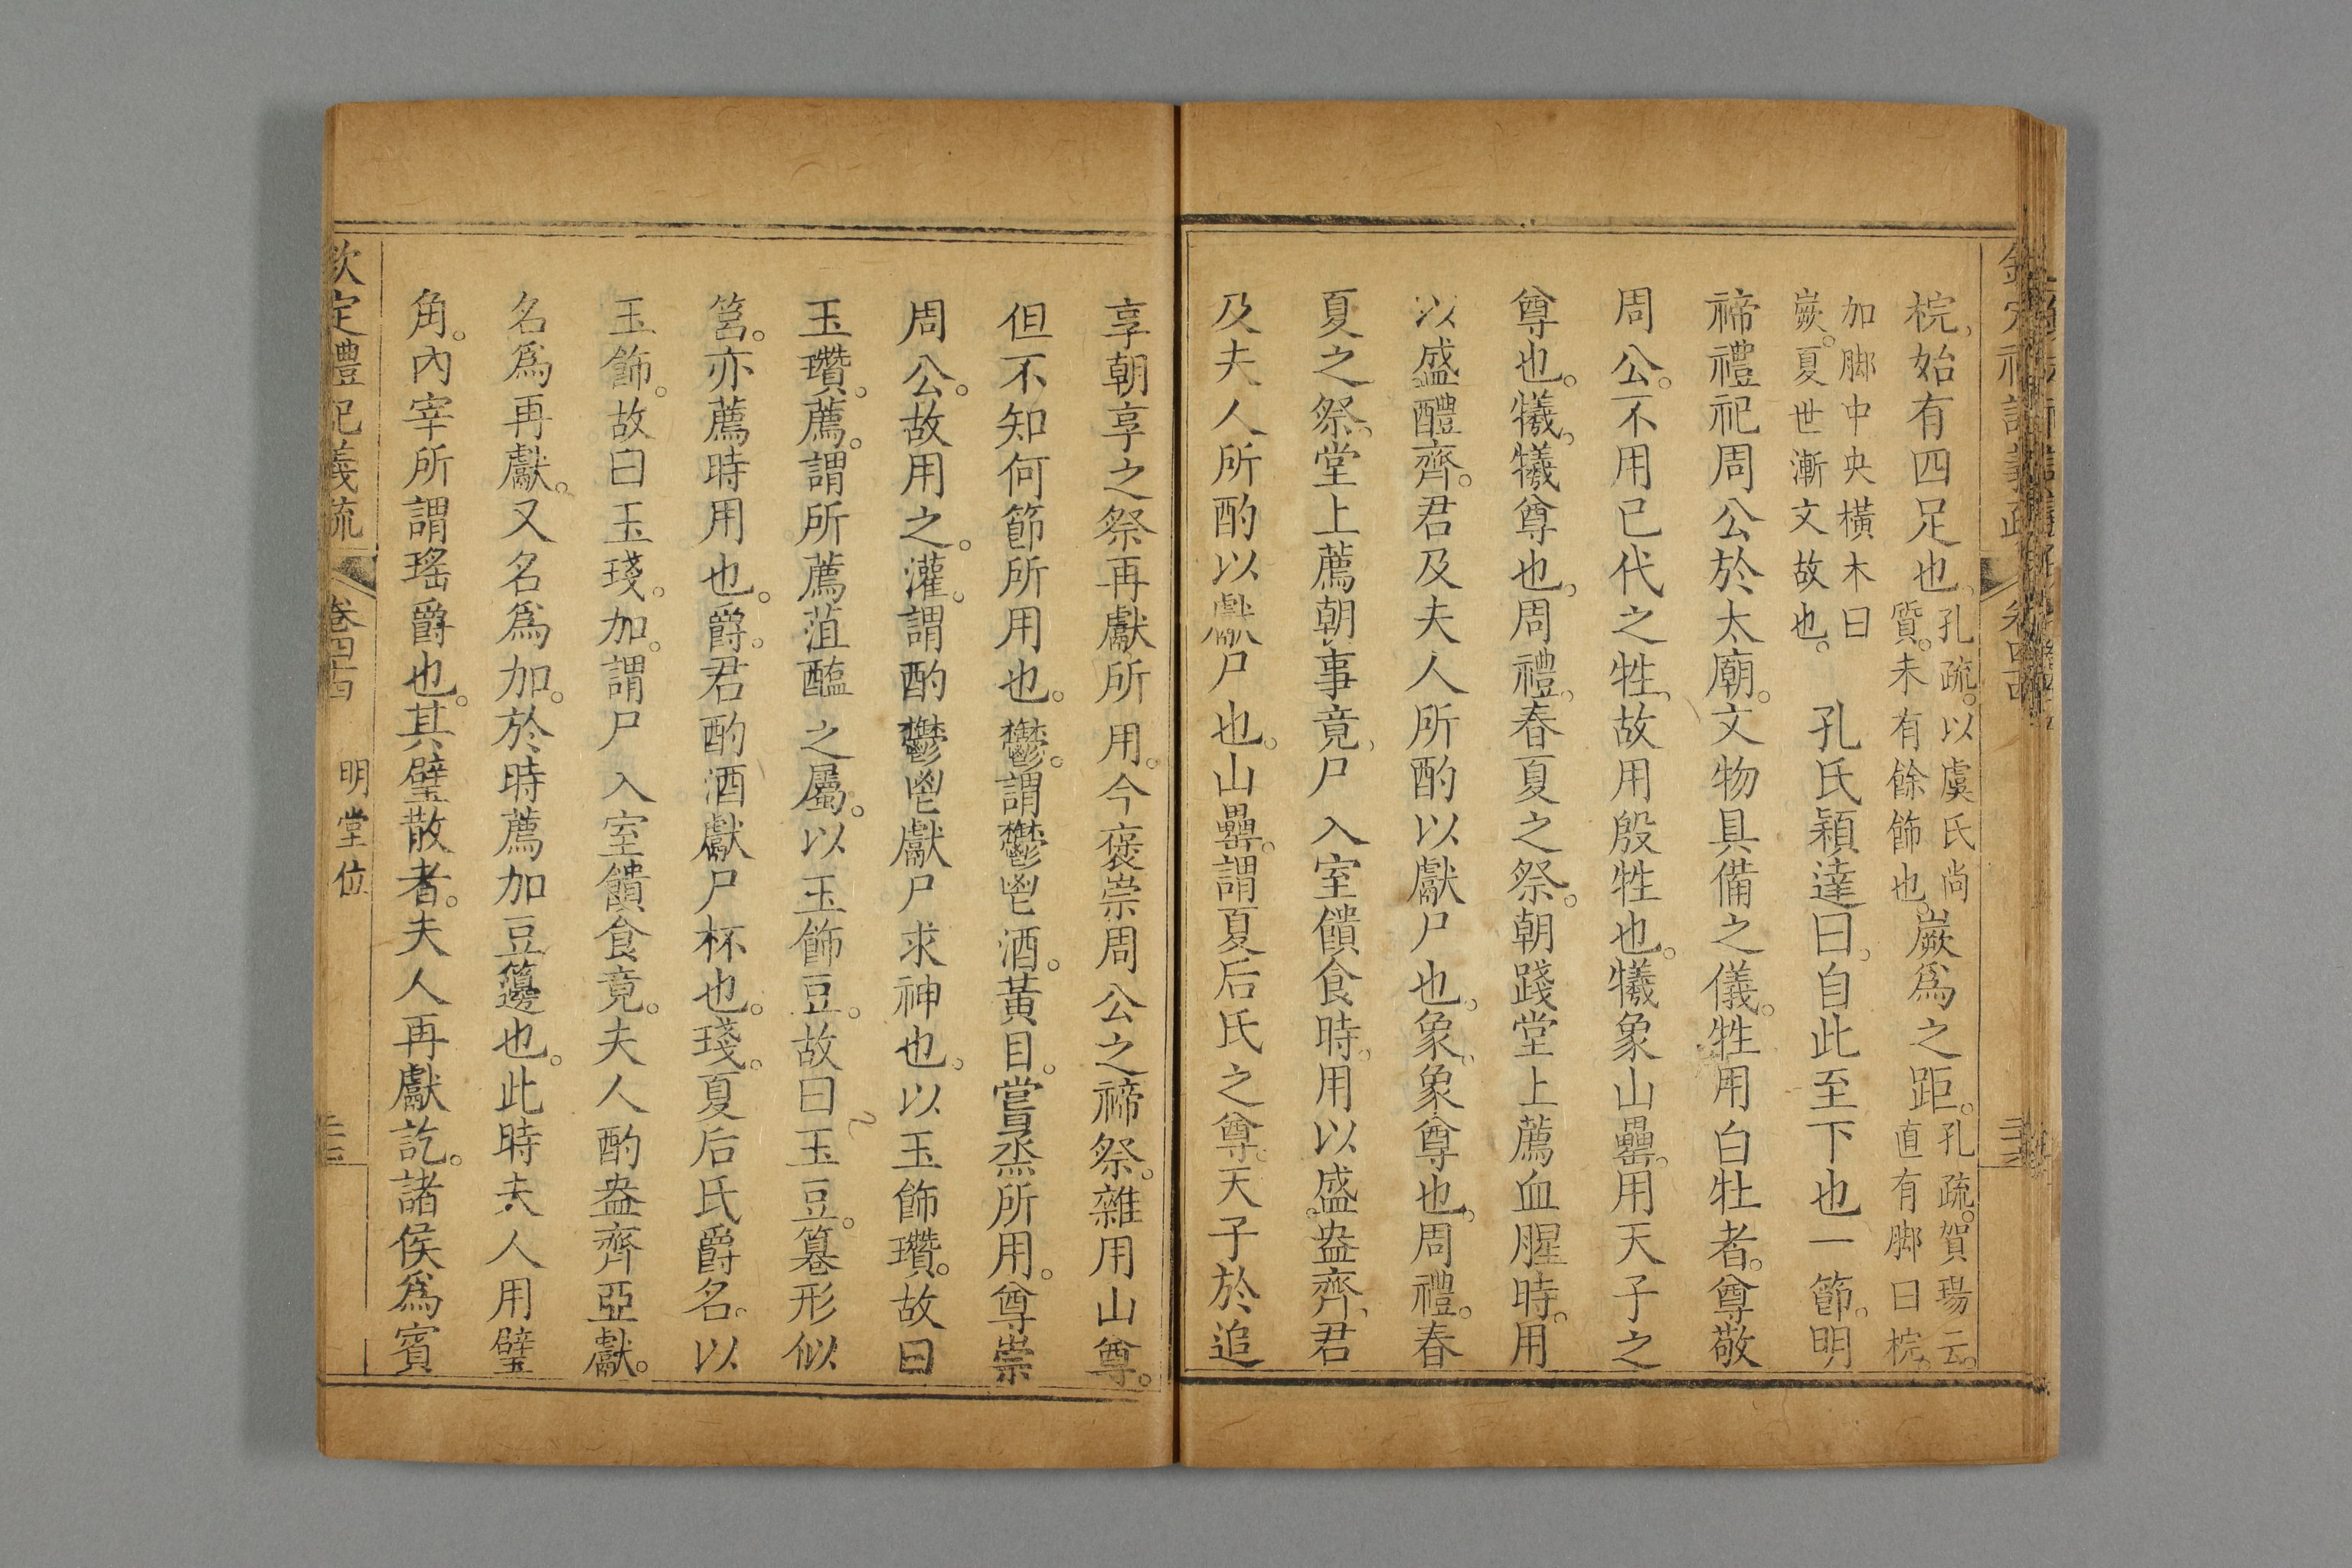 梡、始有四足也、孔疏。以虞氏尚質。未有餘飾也。嶡爲之距。孔疏。賀瑒云。直有脚曰梡。
加脚中央橫木曰嶡。夏世漸文故也。 孔氏穎達曰、自此至下也一節。明
禘禮祀周公於太廟。文物具備之儀。牲用白牡者。尊敬
周公。不用已代之牲、故用殷牲也。犧象山罍。用天子之
尊也。犧、犧尊也、周禮、春夏之祭。朝踐堂上薦血腥時。用
以盛醴齊。君及夫人所酌以獻尸也、象、象尊也、周禮。春
夏之祭、堂上薦朝事竟、尸入室饋食時。用以盛盎齊、君
及夫人所酌以獻尸也。山罍。謂夏后氏之尊。天子於追
享朝享之祭再獻所用。今褒崇周公之禘祭。雜用山尊。
但不知何節所用也。鬱。謂鬱鬯酒。黃目。嘗烝所用。尊崇
周公。故用之。灌。謂酌鬱鬯獻尸求神也。以玉飾瓚。故曰
玉瓚。薦。謂所薦菹醢之屬。以玉飾豆。故曰玉豆。篹形似
筥。亦薦時用也。爵。君酌酒獻尸杯也。琖。夏后氏爵名。以
玉飾。故曰玉琖。加。謂尸入室饋食竟。夫人酌盎齊亞獻。
名爲再獻。又名爲加。於時薦加豆籩也。此時夫人用璧
角。內宰所謂瑤爵也。其璧散者。夫人再獻訖。諸侯爲賓
欽定禮記義疏 明堂位